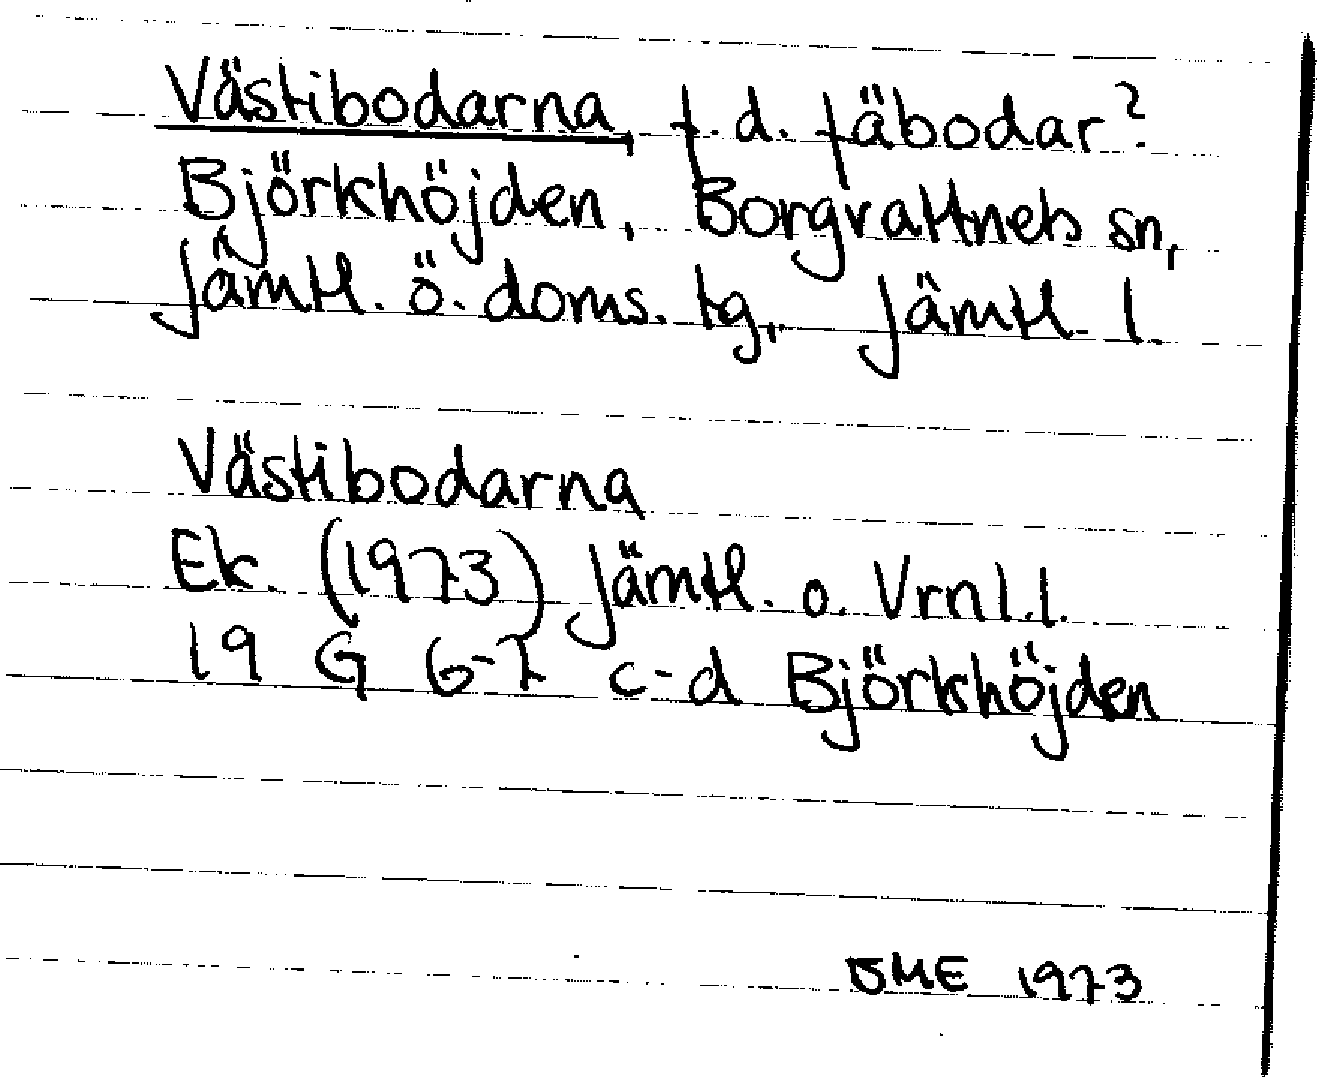 Västibodarna, f.d. fäbodar?
Björkhöjden, Borgvattnets sn,
Jämtl. ö. doms. tg., Jämtl. l.
Västibodarna
Ek. (1973) Jämtl. o. Vrnl.l.
19 G 6-7 c-d Björkhöjden
1973